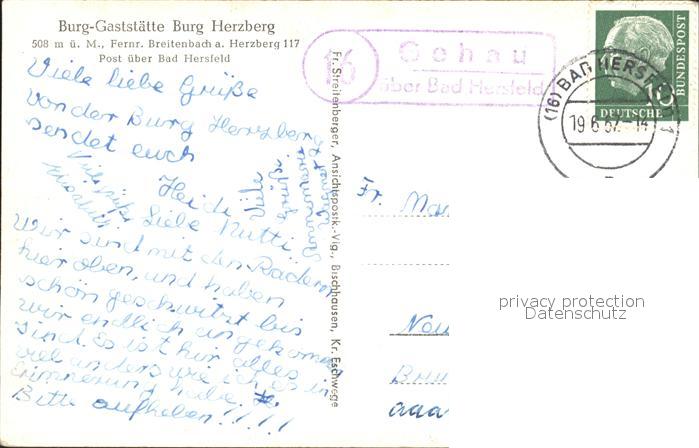 Burg-Gaststätte Burg Herzberg
508 m ü. M., Fernr. Breitenbach a. Herzberg 117
Post über Bad Hersfeld
16
Gehau
über Bad Hersfeld
(16) BAD HERSFELD 1
19.6.57.-14
10
DEUTSCHE
BUNDESPOST
Viele liebe Grüße
von der Burg Herzberg
sendet euch
Heidi
Viele Grüße
Viele
Grüße
Liebe Mutti
Wir sind mit den Rädern
hier oben, und haben
schön geschwitzt bis
wir endlich angekommen
sind. Es ist hir alles
viel anders wie ich es in
Erinnerung habe.
Bitte aufheben!!!!
Fr. Streitenberger, Ansichtspostk.-Vlg., Bischhausen, Kr. Eschwege
Fr.
privacy protection
Datenschutz